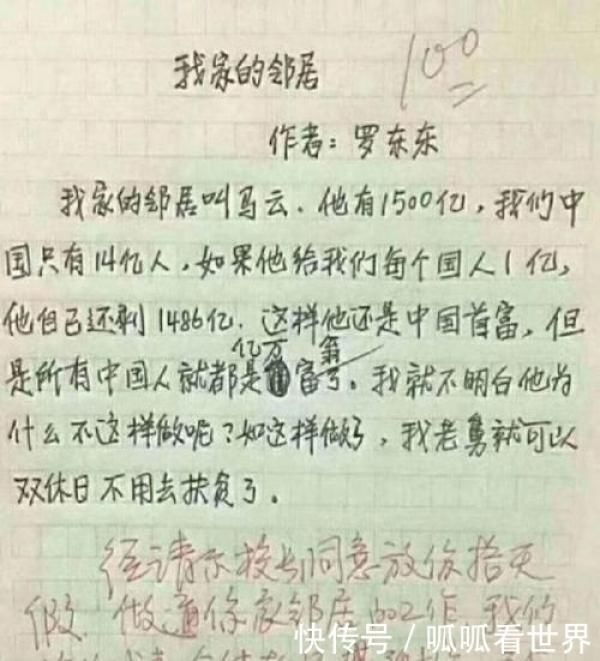 我家的邻居
100
作者：罗东东
我家的邻居叫马云.他有1500亿,我们中
国只有14亿人,如果他给我们每个国人1亿,
他自己还剩1486亿.这样他还是中国首富,但
亿万 翁
是所有中国人就都是富了。我就不明白他为
什么不这样做呢?如这样做了,我老舅就可以
双休日不用去扶贫了。
经请示校长同意放你拾天
假.做通你家邻居的工作.我们
快传号/呱呱看世界